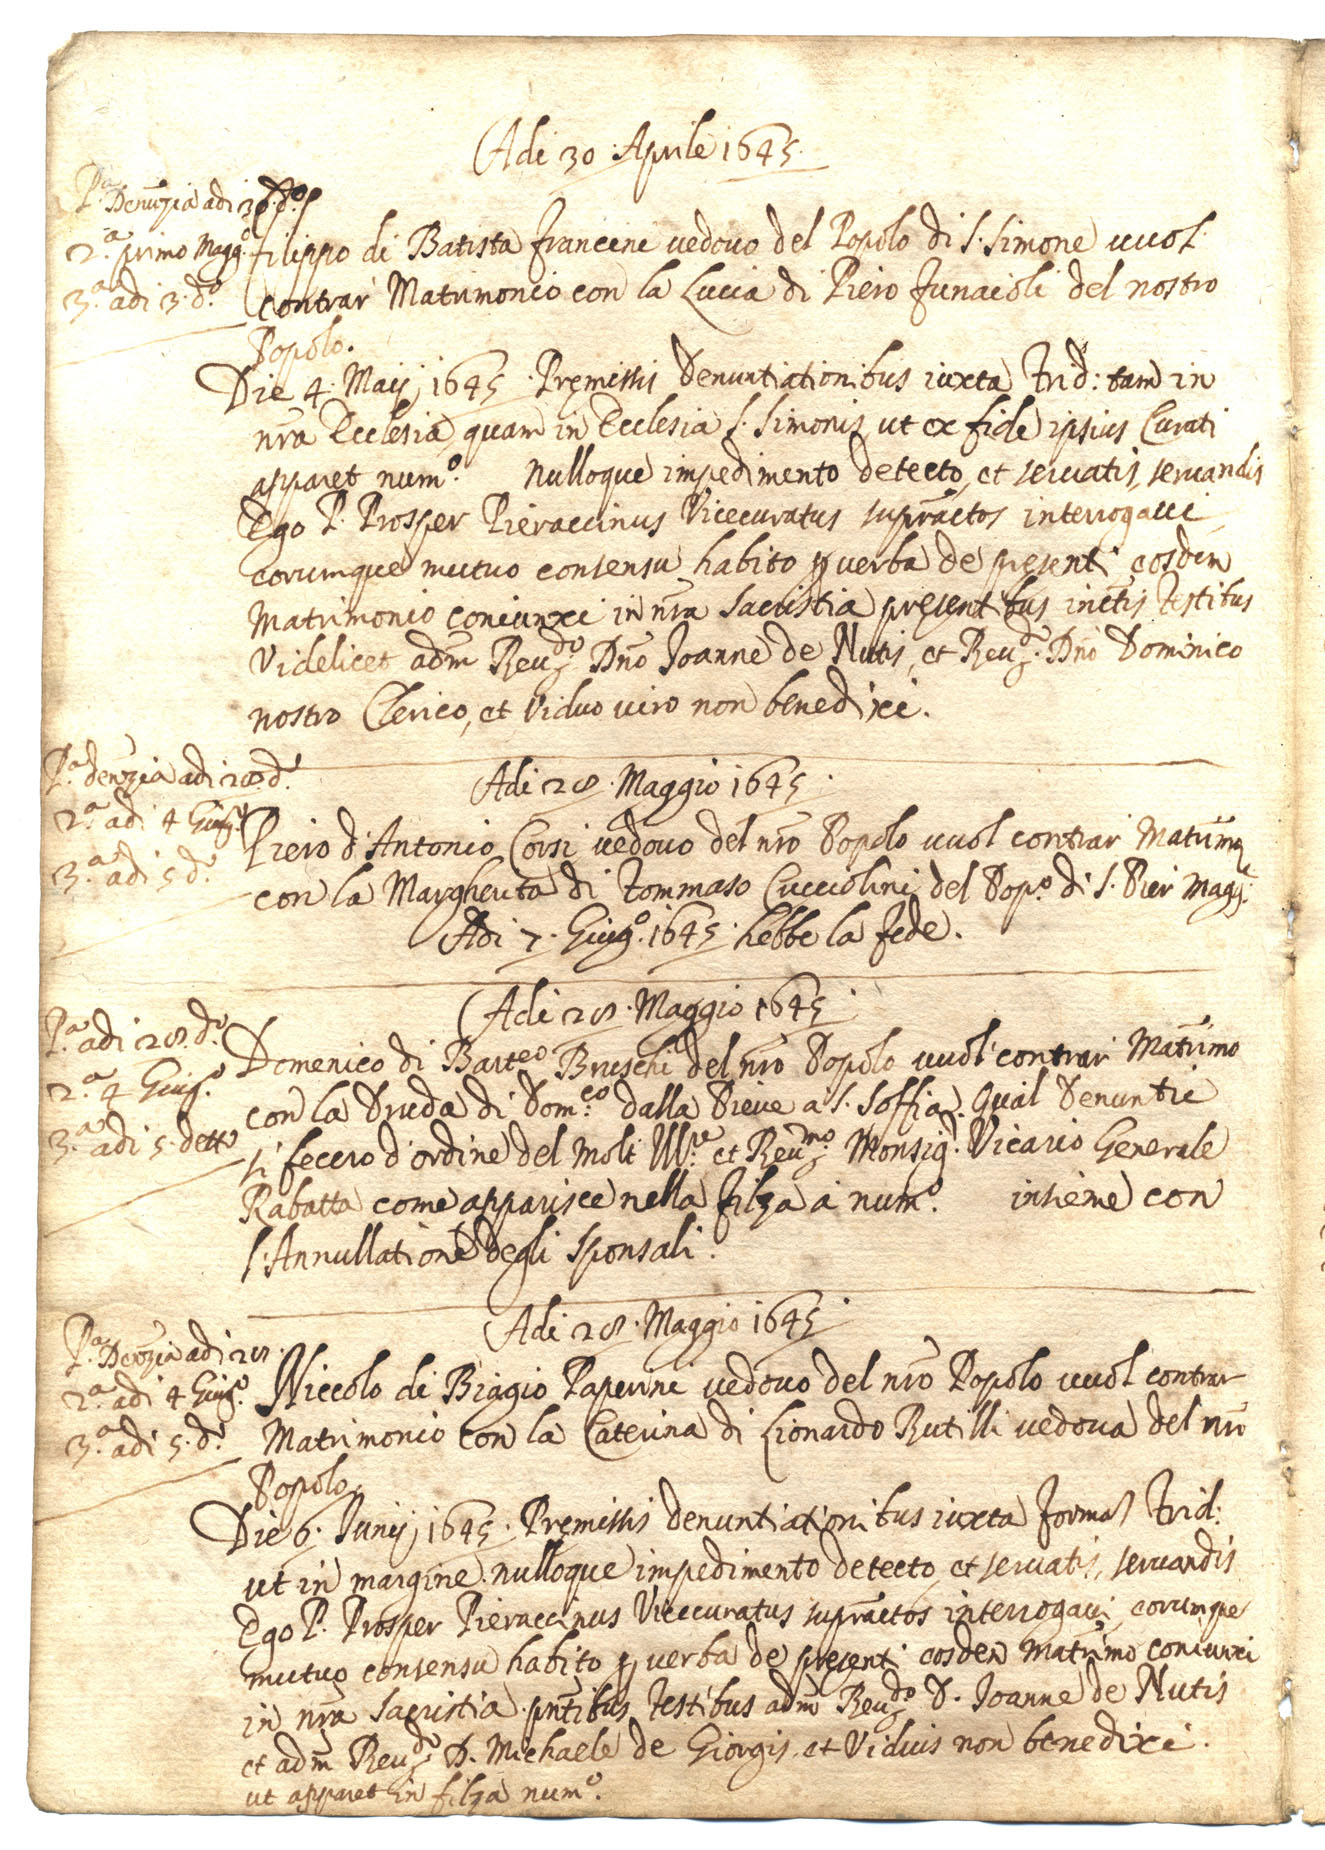 Adi 30 Aprile 1645.
P.a Denuzia adi 30 d.o
2.a primo Magg.o
3.a adi 3. d.o
Filippo di Batista Francini vedovo del Popolo di S. Simone vuol
contrar Matrimonio con la Lucia di Piero Funaioli del nostro
Popolo.
Die 4. Maij 1645. Premissis Denuntiationibus iuxta Trid: tam in
nra Ecclesia quam in Ecclesia S. Simonis ut ex fide ipsius Curati
apparet num.o nulloque impedimento detecto, et servatis servandis
Ego P. Prosper Pieraccinus Vicecuratus suprāctos interrogavi
eorumque mutuo consensu habito p verba de presenti eosdem
Matrimonio coniunxi in nra Sacristia presentibus Testibus
Videlicet adm Reu.do Dno Joanne de Nutis, et Reu.do Dno Dominico
nostro Clerico, et Viduo viro non benedixi.
Adi 28. Maggio 1645.
P.a denozia adi 28 d.o
2.a adi 4 Giug.o
3.a adi 5 d.o
Piero d'Antonio Corsi vedovo del nro Popolo vuol contrar Matrimo
con la Margherita di Tommaso Cucciolini del Pop.o di S. Pier Magg.
Adi 7. Giug.o 1645. hebbe la fede.
Adi 28. Maggio 1645.
P.a adi 28. d.o
2.a 4 Giug.o
3.a adi 5. detto
Domenico di Bart.eo Bruschi del nro Popolo vuol contrar Matrimo
con la Druda di Dom.co dalla Pieve a S. Soffia. Qual Denuntie
si fecero d'ordine del Molt Ill.re et Reu.mo Monsig.r Vicario Generale
Rabatta come apparisce nella filza a num.o insieme con
l'Annullatione degli sponsali.
Adi 28. Maggio 1645.
P.a Denozia adi 28.
2.a adi 4 Giug.o
3.a adi 5. d.o
Niccolo di Biagio Paperini vedovo del nro Popolo vuol contrar
Matrimonio con la Caterina di Lionardo Rutilli vedova del nro
Popolo.
Die 6. Junij 1645. Premissis denuntiationibus iuxta formā Trid:
ut in margine nulloque impedimento detecto, et servatis, servandis
Ego P. Prosper Pieraccinus Vicecuratus suprāctos interrogavi, eorumque
mutuo consensu habito p verba de presenti eosdem Matrimo coniunxi
in nra Sacristia pntibus Testibus adm Reu.do D. Joanne de Nutis
et adm Reu.do D. Michaele de Giorgis, et Viduis non benedixi.
ut apparet in filza num.o